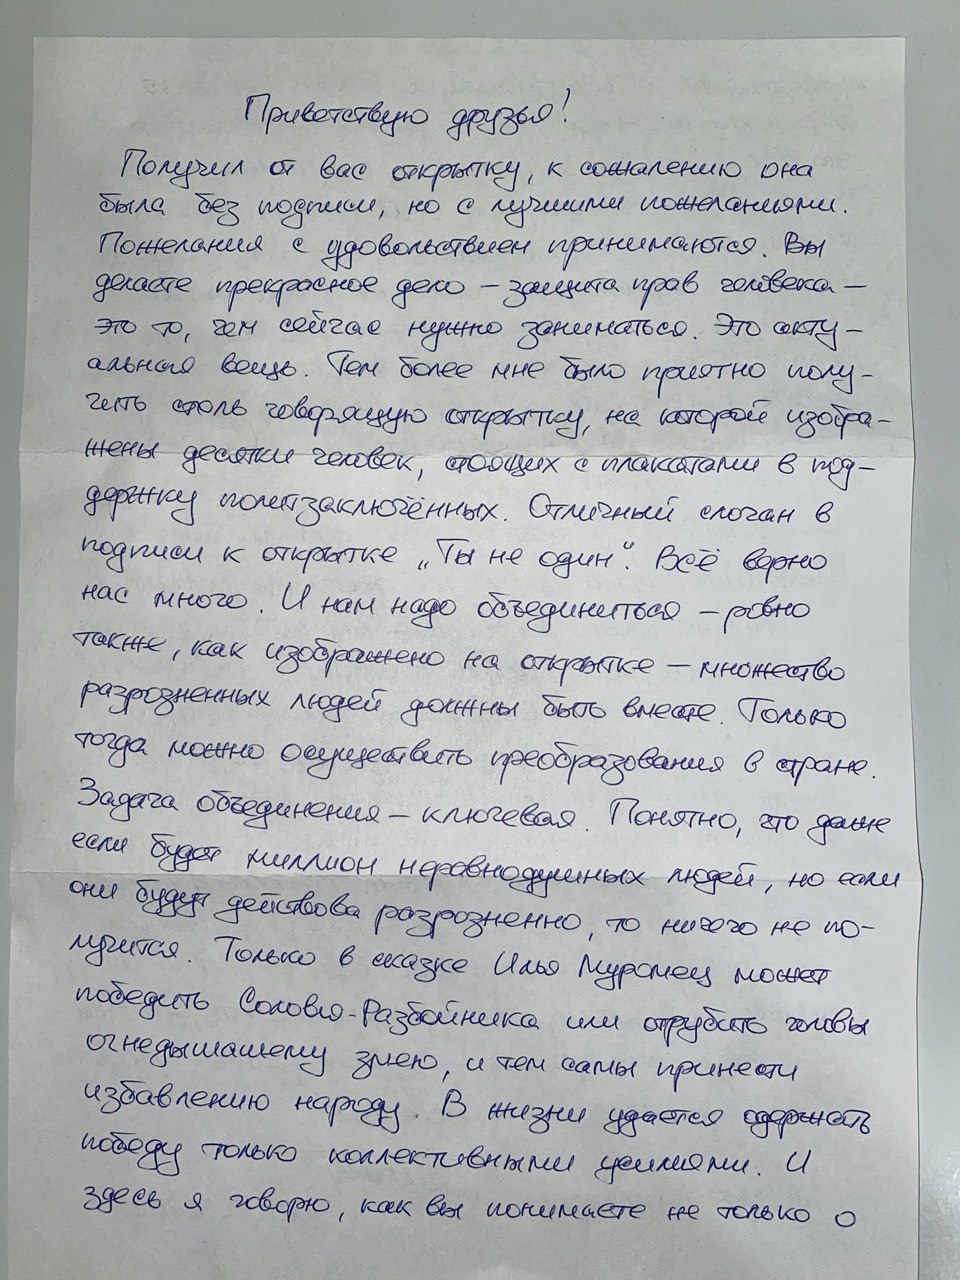 Приветствую друзья!
Получил от вас открытку, к сожалению она
была без подписи, но с лучшими пожеланиями.
Пожелания с удовольствием принимаются. Вы
делаете прекрасное дело – защита прав человека –
это то, чем сейчас нужно заниматься. Это акту-
альная вещь. Тем более мне было приятно полу-
чить столь говорящую открытку, на которой изобра-
жены десятки человек, стоящих с плакатами в под-
держку политзаключённых. Отличный слоган в
подписи к открытке „Ты не один“. Всё верно
нас много. И нам надо объединиться – ровно
также, как изображено на открытке – множество
разрозненных людей должны быть вместе. Только
тогда можно осуществить преобразования в стране.
Задача объединения – ключевая. Понятно, что даже
если будет миллион неравнодушных людей, но если
они будут действова разрозненно, то ничего не по-
лучится. Только в сказке Илья Муромец может
победить Соловья-Разбойника или отрубить головы
огнедышашему змею, и тем самы принести
избавлению народу. В жизни удаётся одержать
победу только коллективными усилиями. И
здесь я говорю, как вы понимаете не только о